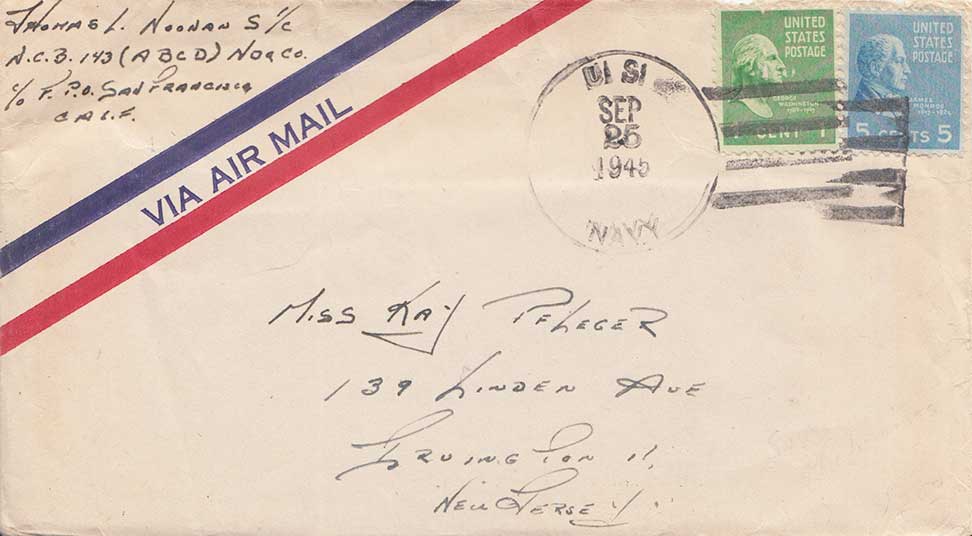 Thomas L. Noonan S 1/c
N.C.B. 143 (ABCD) Norco.
c/o F.P.O. San Francisco
CALF.
VIA AIR MAIL
SEP
25
1945
NAVY
UNITED
STATES
POSTAGE
GEORGE
WASHINGTON
CENT 1
UNITED
STATES
POSTAGE
JAMES
MONROE
5 CENTS 5
Miss Kay Pfleger
139 Linden Ave
Irvington 11,
New Jersey.